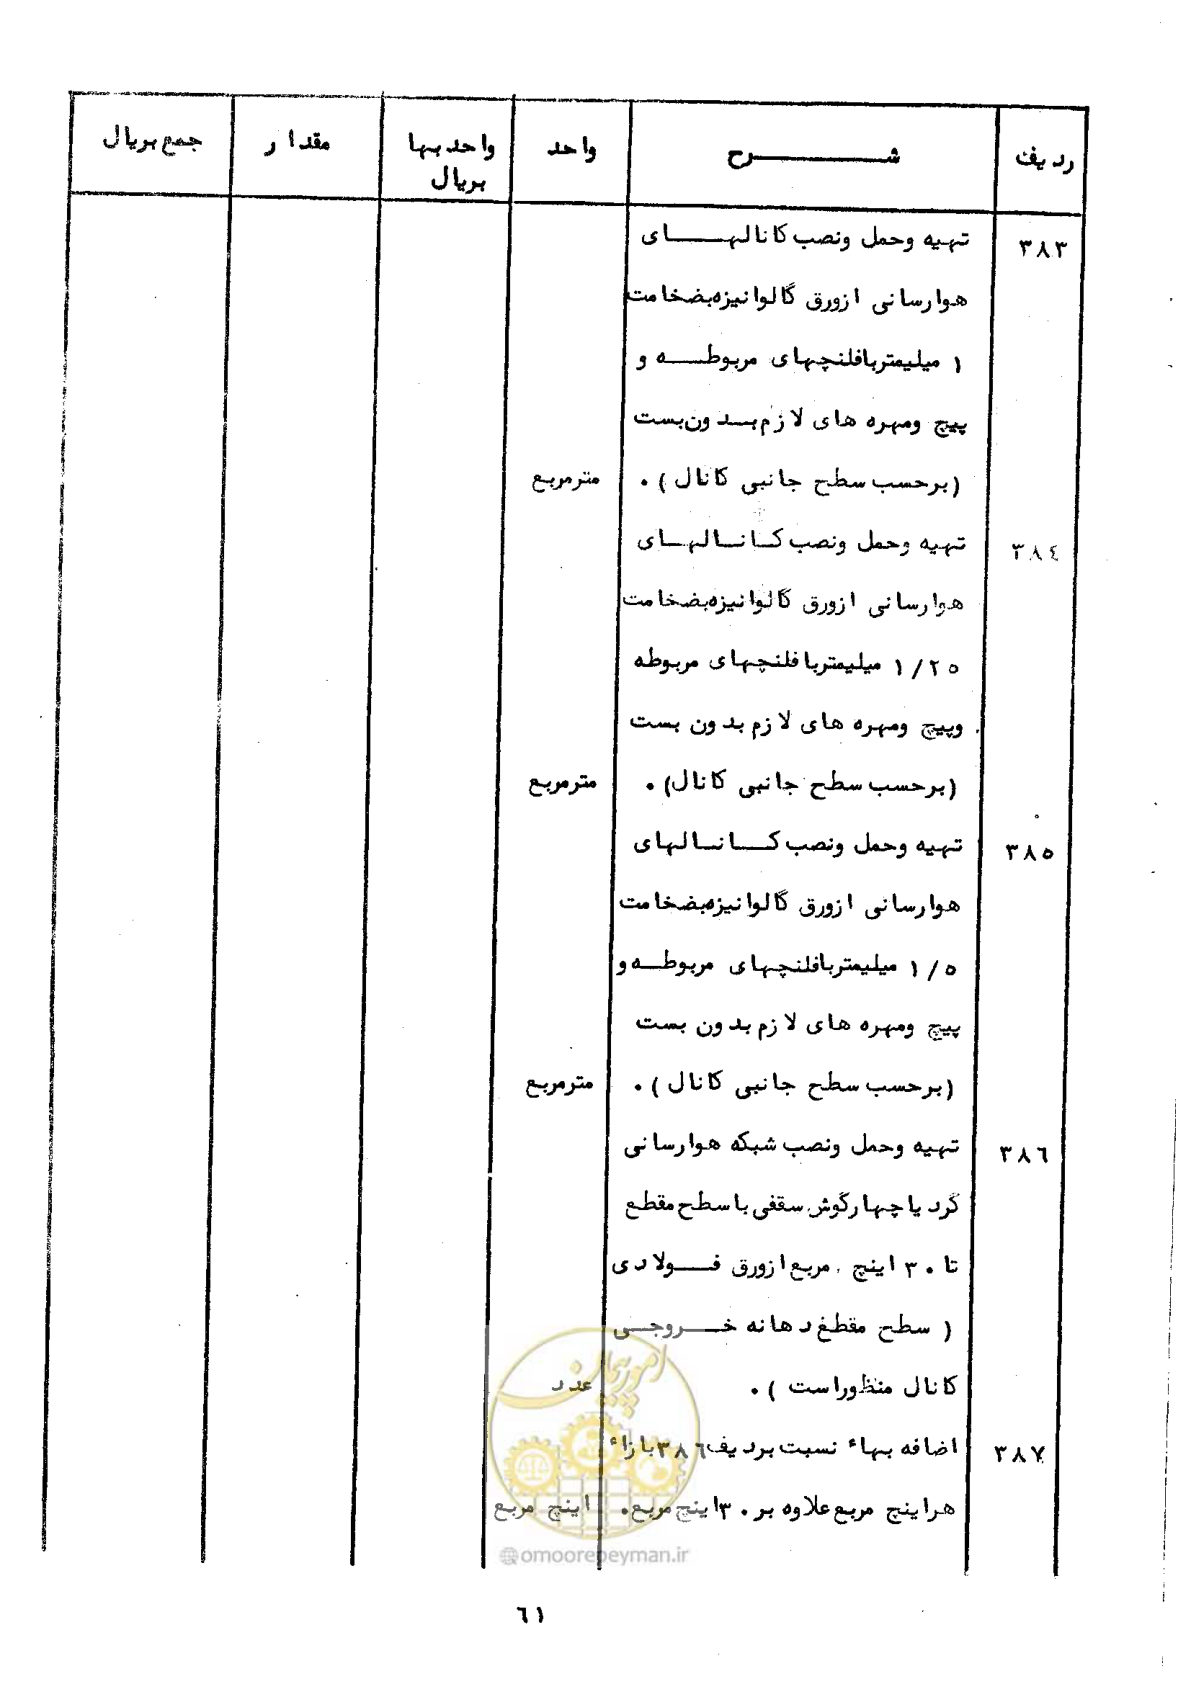 ردیف شرح واحد واحد بها مقدار جمع بریال
بریال
۳۸۳ تهیه وحمل ونصب کانالهای
هوارسانی ازورق گالوانیزه بضخامت
۱ میلیمتر بافلنچهای مربوطه و
پیچ ومهره های لازم بدون بست
(برحسب سطح جانبی کانال). مترمربع
۳۸٤ تهیه وحمل ونصب کانالهای
هوارسانی ازورق گالوانیزه بضخامت
۱/۲۵ میلیمتر بافلنچهای مربوطه
وپیچ ومهره های لازم بدون بست
(برحسب سطح جانبی کانال). مترمربع
۳۸۵ تهیه وحمل ونصب کانالهای
هوارسانی ازورق گالوانیزه بضخامت
۱/۵ میلیمتر بافلنچهای مربوطه و
پیچ ومهره های لازم بدون بست
(برحسب سطح جانبی کانال). مترمربع
۳۸٦ تهیه وحمل ونصب شبکه هوارسانی
گرد یا چهارگوش سقفی با سطح مقطع
تا ۳۰ اینچ مربع ازورق فولادی
( سطح مقطع دهانه خروجی
کانال منظوراست ). عدد
۳۸۷ اضافه بهاء نسبت بردیف ۳۸٦ بازاء
هراینچ مربع علاوه بر ۳۰ اینچ مربع. اینچ مربع
امور پیمان
@omoorepeyman.ir
٦۱